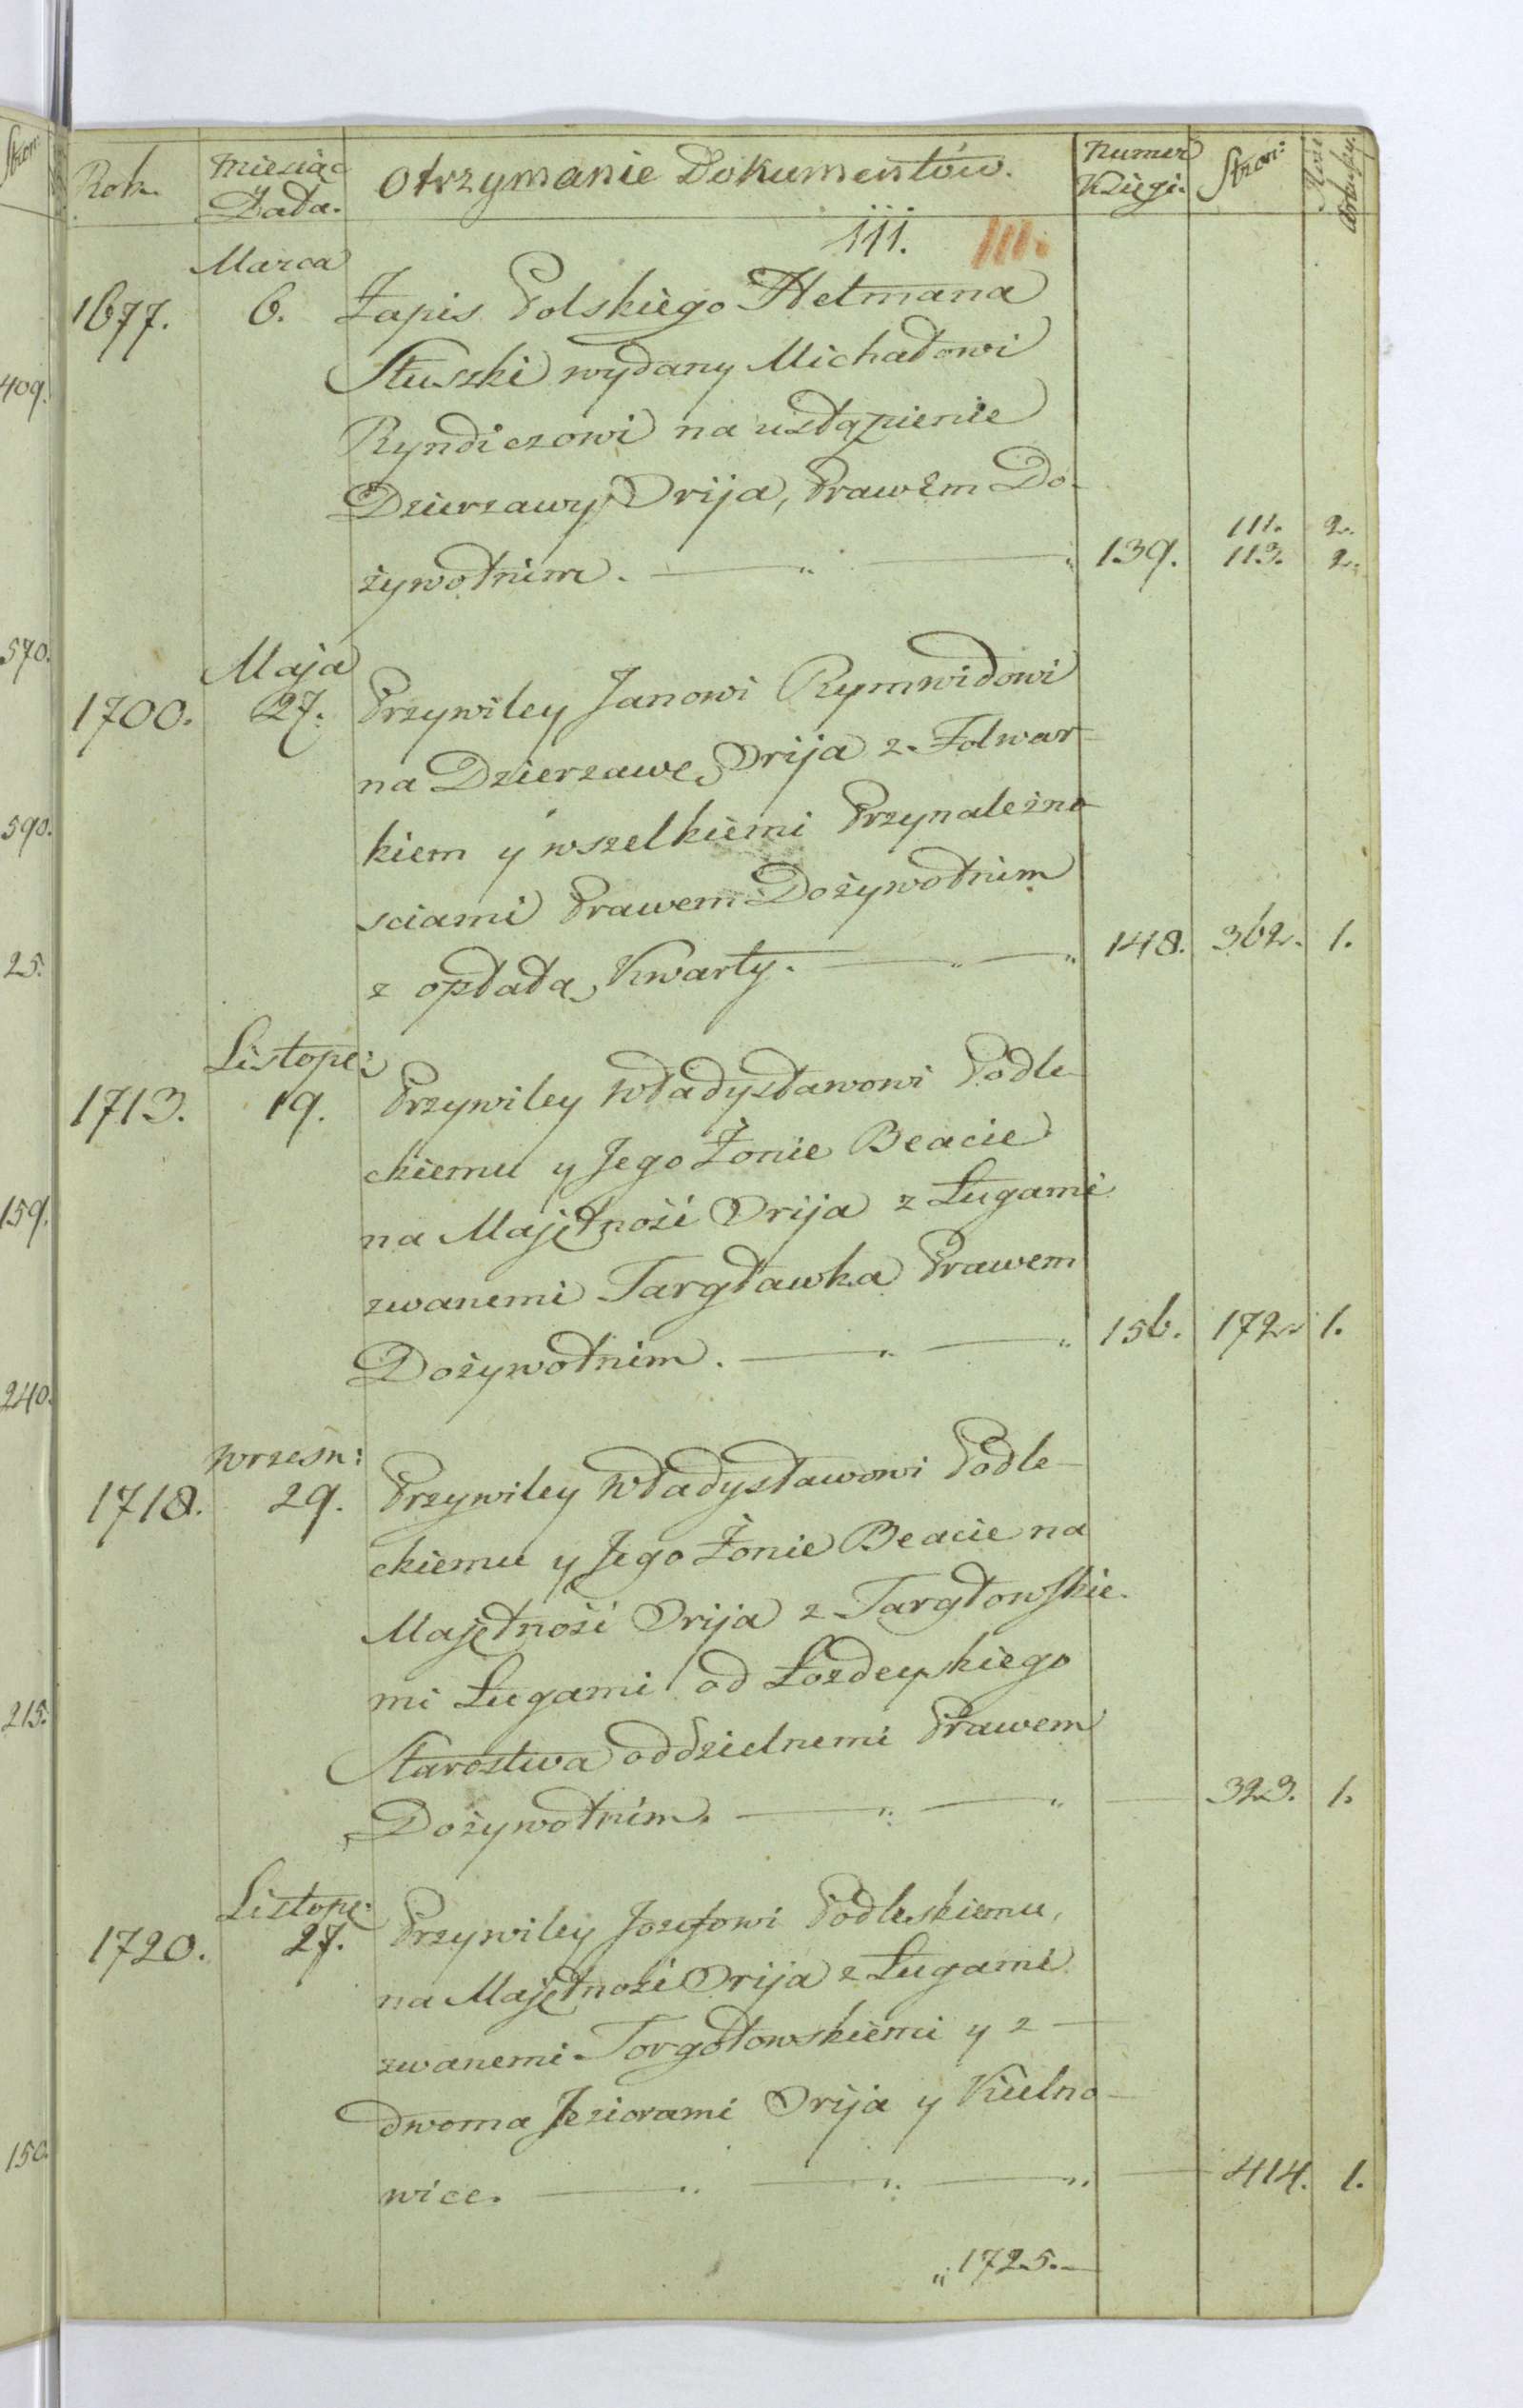 Stron:
Rok.
Miesiąc
Data.
Otrzymanie Dokumentów.
Numer
Księgi.
Stron:
Ilość
Arkuszy.
III. III.
Marca
1677. 6. Zapis Polskiego Hetmana
Słuszki wydany Michałowi
Ryndiczowi na ustąpienie
Dzierzawy Orija, Prawem Do-
111. 2.
żywotnim. 139. 113. 2.
Maja
1700. 27. Przywiley Janowi Rymwidowi
na Dzierzawę Orija z Folwar-
kiem y wszelkiemi Przynależno-
sciami Prawem Dożywotnim
z opłatą Kwarty. 148. 362. 1.
Listope:
1713. 19. Przywiley Władysławowi Podle-
ckiemu y Jego Żonie Beacie
na Majętność Orija z Ługami
zwanemi Targławka Prawem
Dożywotnim. 156. 172. 1.
Wrzesn:
1718. 29. Przywiley Władysławowi Podle-
ckiemu y Jego Żonie Beacie na
Majętność Orija z Targłowskie-
mi Ługami od Łozdeyskiego
Starostwa oddzielnemi Prawem
Dożywotnim. 323. 1.
Listope:
1720. 27. Przywiley Jozefowi Podleskiemu,
na Majętność Orija z Ługami
zwanemi Torgołowskiemi y z
dwoma Jeziorami Orija y Kielno-
wice. 414. 1.
1725.
409.
570.
590.
25.
159.
240.
215.
150.